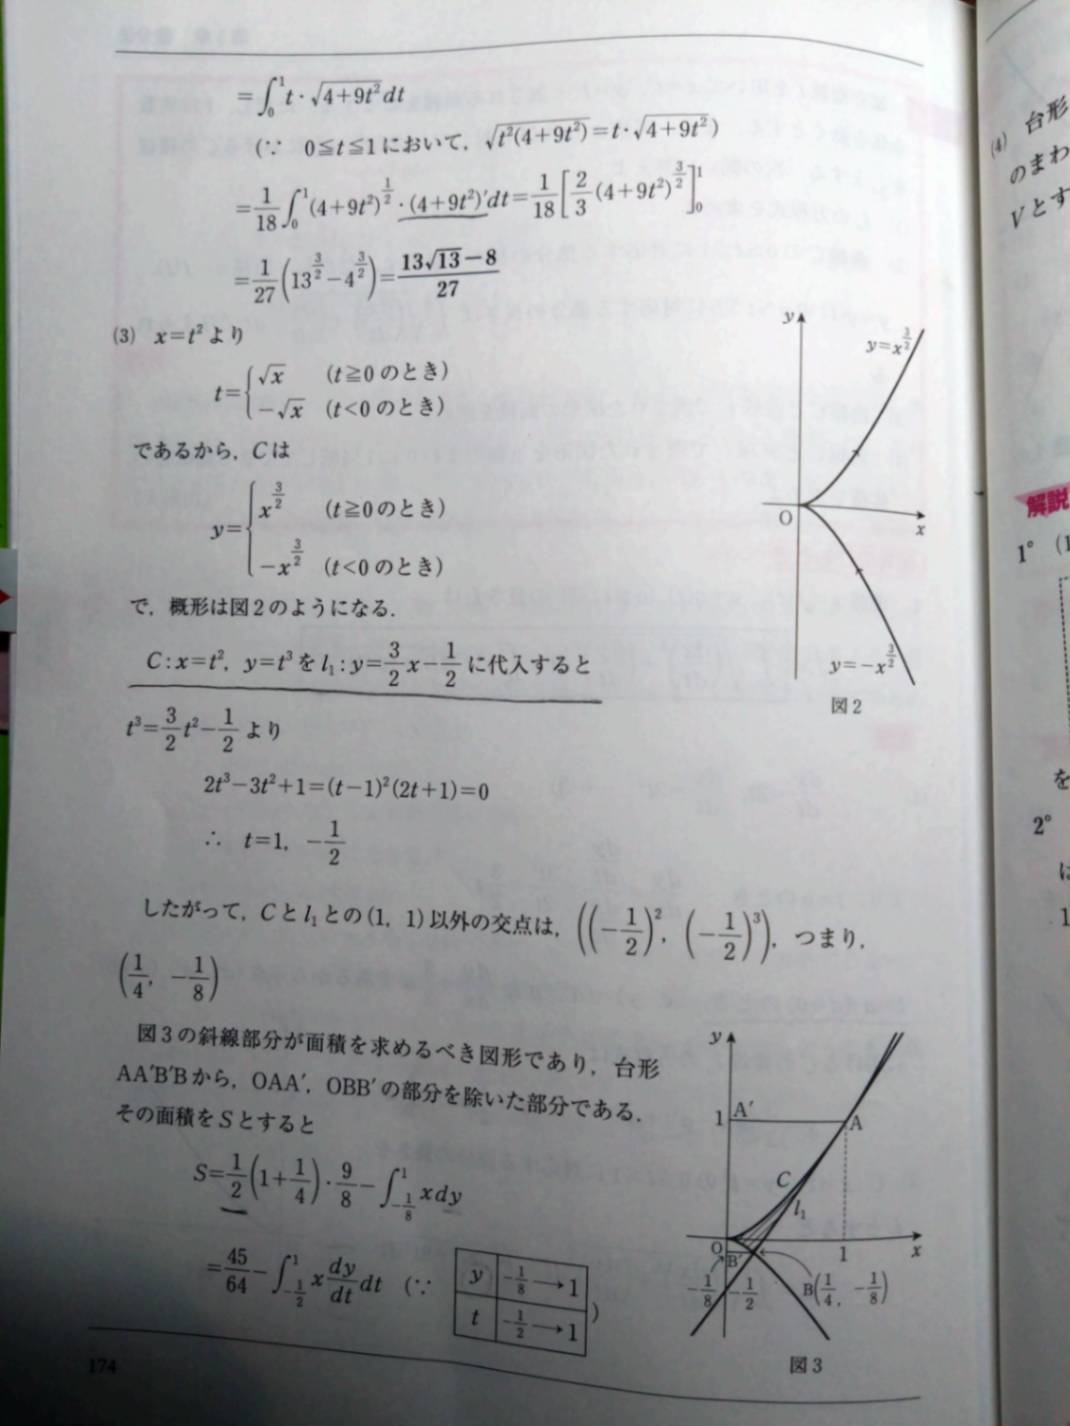 =∫₀¹ t・√(4+9t²) dt
(∵ 0≦t≦1において，√(t²(4+9t²))=t・√(4+9t²))
=1/18 ∫₀¹ (4+9t²)^(1/2)・(4+9t²)′dt=1/18 [2/3 (4+9t²)^(3/2)]₀¹
=1/27 (13^(3/2)−4^(3/2))=(13√13−8)/27
(3) x=t²より
t={√x (t≧0のとき)
−√x (t<0のとき)
であるから，Cは
y={x^(3/2) (t≧0のとき)
−x^(3/2) (t<0のとき)
で，概形は図2のようになる．
y
y=x^(3/2)
O
x
y=−x^(3/2)
図2
C:x=t²，y=t³をl₁:y=3/2 x−1/2 に代入すると
t³=3/2 t²−1/2 より
2t³−3t²+1=(t−1)²(2t+1)=0
∴ t=1，−1/2
したがって，Cとl₁との(1，1)以外の交点は，((−1/2)²，(−1/2)³)，つまり，
(1/4，−1/8)
図3の斜線部分が面積を求めるべき図形であり，台形
AA′B′Bから，OAA′，OBB′の部分を除いた部分である．
その面積をSとすると
S=1/2 (1+1/4)・9/8−∫_(−1/8)^1 xdy
=45/64−∫_(−1/2)^1 x dy/dt dt (∵
y −1/8→1
t −1/2→1
)
y
1 A′
A
C
l₁
O
B′
1
x
−1/8
−1/2
B(1/4，−1/8)
図3
174
(4) 台形
のまわ
Vとす
解説
1° (1
を
2°
は
1